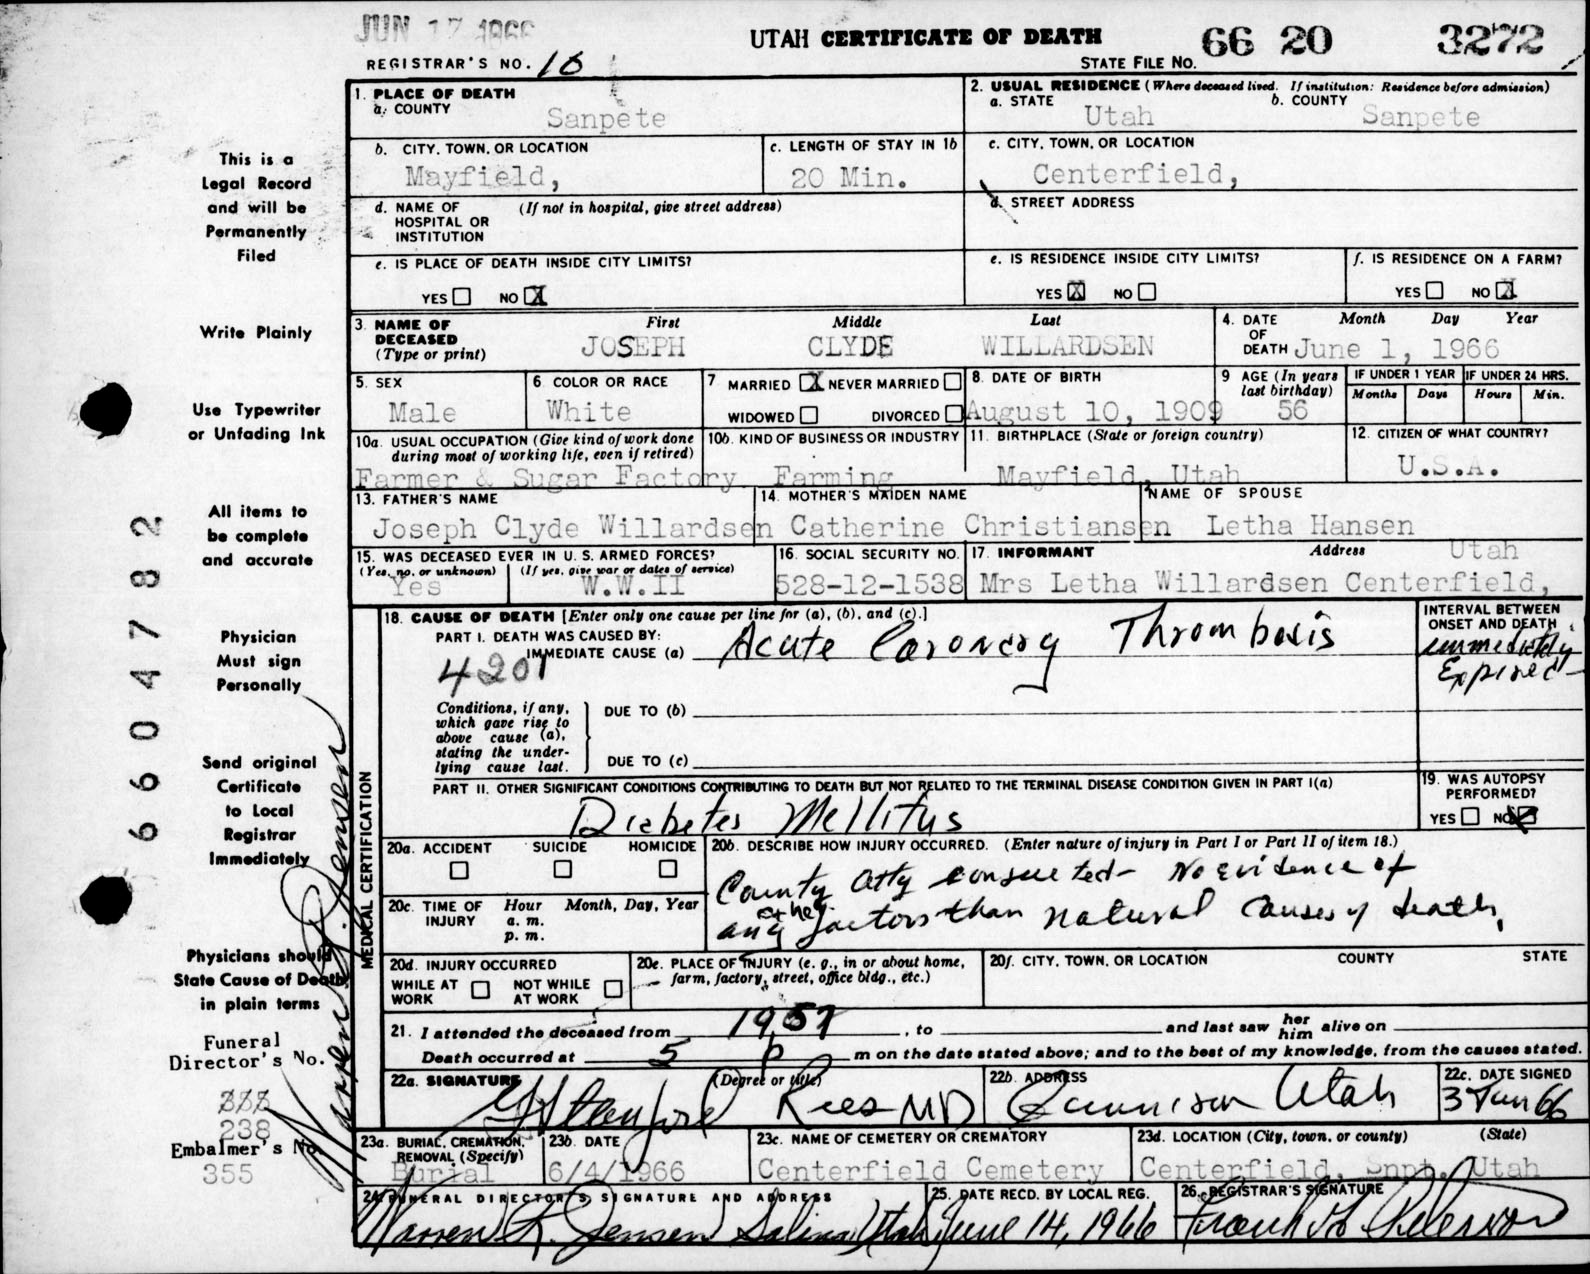 JUN 17 1966
UTAH CERTIFICATE OF DEATH 66 20 3272
REGISTRAR'S NO. 16
STATE FILE NO.
This is a
Legal Record
and will be
Permanently
Filed
Write Plainly
Use Typewriter
or Unfading Ink
All items to
be complete
and accurate
Physician
Must sign
Personally
Send original
Certificate
to Local
Registrar
Immediately
Physicians should
State Cause of Death
in plain terms
Funeral
Director's No.
238
Embalmer's No.
355
6604782
Warren L. Jensen
1. PLACE OF DEATH
a. COUNTY
Sanpete
2. USUAL RESIDENCE (Where deceased lived. If institution: Residence before admission)
a. STATE b. COUNTY
Utah Sanpete
b. CITY, TOWN, OR LOCATION
Mayfield,
c. LENGTH OF STAY IN 1b
20 Min.
c. CITY, TOWN, OR LOCATION
Centerfield,
d. NAME OF (If not in hospital, give street address)
HOSPITAL OR
INSTITUTION
d. STREET ADDRESS
e. IS PLACE OF DEATH INSIDE CITY LIMITS?
YES NO X
e. IS RESIDENCE INSIDE CITY LIMITS?
YES X NO
f. IS RESIDENCE ON A FARM?
YES NO X
3. NAME OF
DECEASED
(Type or print)
First Middle Last
JOSEPH CLYDE WILLARDSEN
4. DATE Month Day Year
OF
DEATH June 1, 1966
5. SEX
Male
6 COLOR OR RACE
White
7 MARRIED X NEVER MARRIED
WIDOWED DIVORCED
8. DATE OF BIRTH
August 10, 1909
9 AGE (In years
last birthday)
56
IF UNDER 1 YEAR IF UNDER 24 HRS.
Months Days Hours Min.
10a. USUAL OCCUPATION (Give kind of work done
during most of working life, even if retired)
Farmer & Sugar Factory
10b. KIND OF BUSINESS OR INDUSTRY
Farming
11. BIRTHPLACE (State or foreign country)
Mayfield, Utah
12. CITIZEN OF WHAT COUNTRY?
U.S.A.
13. FATHER'S NAME
Joseph Clyde Willardsen
14. MOTHER'S MAIDEN NAME
Catherine Christiansen
NAME OF SPOUSE
Letha Hansen
15. WAS DECEASED EVER IN U. S. ARMED FORCES?
(Yes, no, or unknown) (If yes, give war or dates of service)
Yes W.W.II
16. SOCIAL SECURITY NO.
528-12-1538
17. INFORMANT Address
Utah
Mrs Letha Willardsen Centerfield,
MEDICAL CERTIFICATION
18. CAUSE OF DEATH [Enter only one cause per line for (a), (b), and (c).]
PART I. DEATH WAS CAUSED BY:
IMMEDIATE CAUSE (a) Acute Coronary Thrombosis
4201
INTERVAL BETWEEN
ONSET AND DEATH
immediately
Expired
Conditions, if any,
which gave rise to
above cause (a),
stating the under-
lying cause last.
DUE TO (b)
DUE TO (c)
PART II. OTHER SIGNIFICANT CONDITIONS CONTRIBUTING TO DEATH BUT NOT RELATED TO THE TERMINAL DISEASE CONDITION GIVEN IN PART I(a)
Diabetes Mellitus
19. WAS AUTOPSY
PERFORMED?
YES NO X
20a. ACCIDENT SUICIDE HOMICIDE
20b. DESCRIBE HOW INJURY OCCURRED. (Enter nature of injury in Part I or Part II of item 18.)
County Atty consulted - No evidence of
any other factors than natural causes of death,
20c. TIME OF Hour Month, Day, Year
INJURY a. m.
p. m.
20d. INJURY OCCURRED
WHILE AT NOT WHILE
WORK AT WORK
20e. PLACE OF INJURY (e. g., in or about home,
farm, factory, street, office bldg., etc.)
20f. CITY, TOWN, OR LOCATION COUNTY STATE
21. I attended the deceased from 1957, to and last saw her him alive on
Death occurred at 5 p m on the date stated above; and to the best of my knowledge, from the causes stated.
22a. SIGNATURE (Degree or title)
G Stanford Rees MD
22b. ADDRESS
Gunnison Utah
22c. DATE SIGNED
3 Jun 66
23a. BURIAL, CREMATION,
REMOVAL (Specify)
Burial
23b. DATE
6/4/1966
23c. NAME OF CEMETERY OR CREMATORY
Centerfield Cemetery
23d. LOCATION (City, town, or county) (State)
Centerfield, Snpt, Utah
24. FUNERAL DIRECTOR'S SIGNATURE AND ADDRESS
Warren L. Jensen Salina, Utah
25. DATE RECD. BY LOCAL REG.
June 14, 1966
26. REGISTRAR'S SIGNATURE
Frank